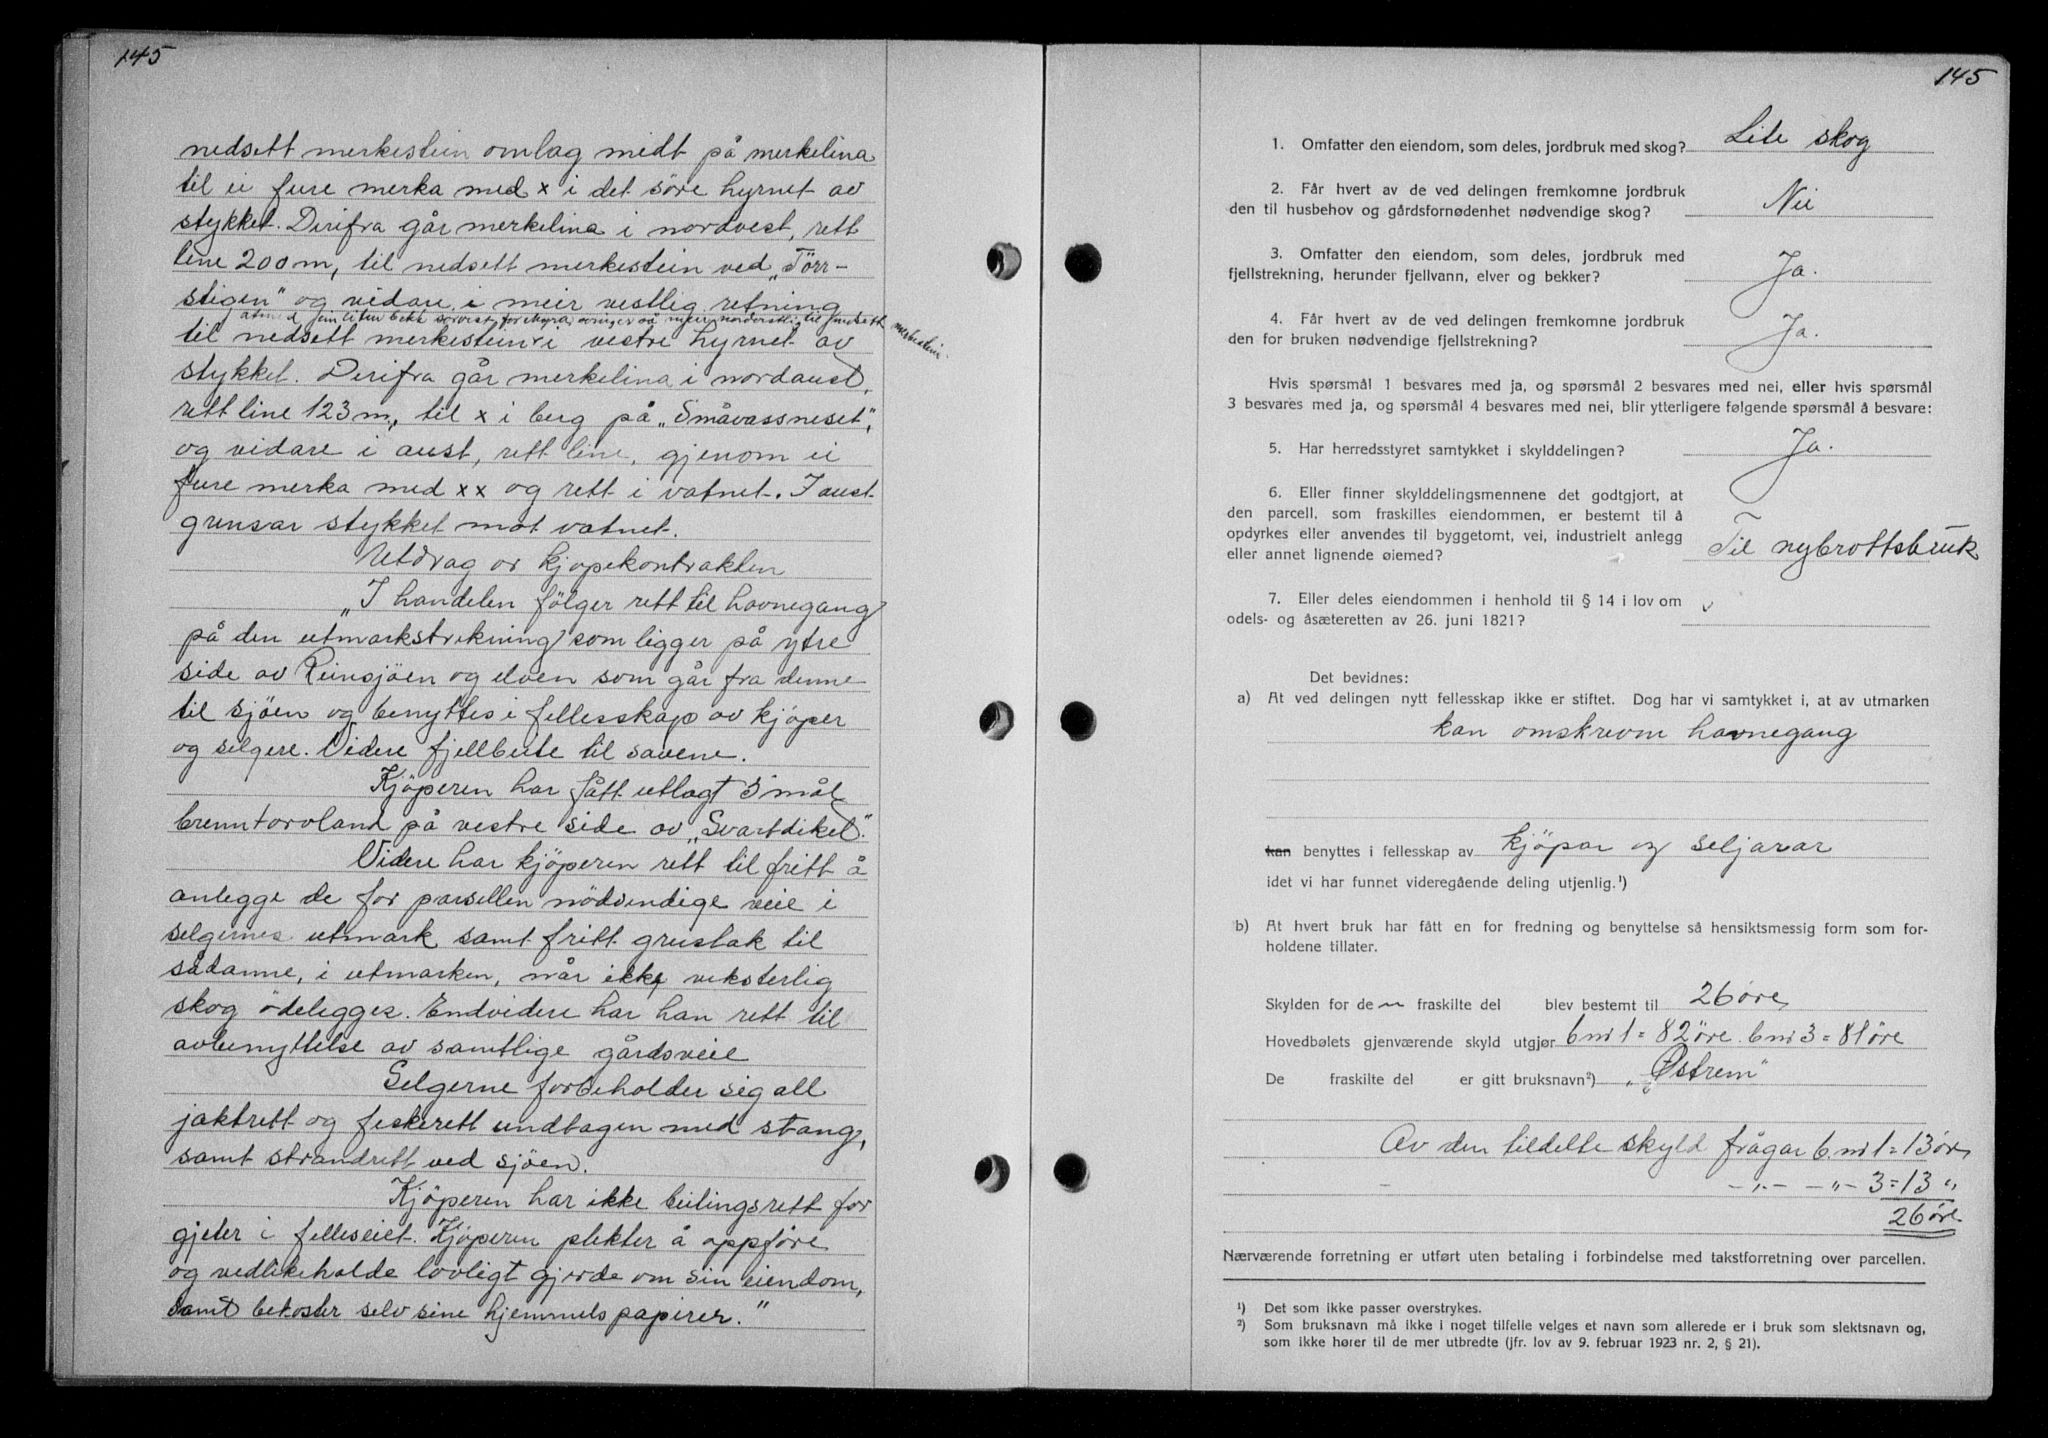 145
nedsett merkestein omlag midt på merkelina
til ei fure merka med x i det søre hyrnet av
stykket. Derifra går merkelina i nordvest, rett
line 200 m, til nedsett merkestein ved „Törr-
stigen" og vidare i meir vestlig retning
til nedsett merkestein i vestre hyrnet av
merkestein.
stykket. Derifra går merkelina i nordaust,
rett line 123 m, til x i berg på „Småvassneset",
og vidare i aust, rett line, gjenom ei
fure merka med xx og rett i vatnet. I aust
grensar stykket mot vatnet.
Utdrag or kjøpekontrakten
„I handelen følger rett til havnegang
på den utmarkstrekning som ligger på ytre
side av Reinsjöen og elven som går fra denne
til sjöen og benyttes i fellesskap av kjöper
og selgere. Videre fjellbeite til sauene.
Kjöperen har fått utlagt 5 mål
brenntorvland på vestre side av „Svartdiket".
Videre har kjöperen rett til fritt å
anlegge de for parsellen nödvendige veie i
selgernes utmark samt fritt grustak til
sådanne, i utmarken, når ikke veksterlig
skog ödelegges. Endvidere har han rett til
avbenyttelse av samtlige gårdsveie
Selgerne forbeholder sig all
jaktrett og feskerett undtagen med stang,
samt strandrett ved sjöen.
Kjöperen har ikke beitingsrett for
gjeter i felleseiet. Kjöperen plekter å oppføre
og vedlikeholde lovligt gjerde om sin eiendom,
samt bekoster selv sine hjemmelspapirer."
145
1. Omfatter den eiendom, som deles, jordbruk med skog? Lite skog
2. Får hvert av de ved delingen fremkomne jordbruk
den til husbehov og gårdsfornødenhet nødvendige skog? Nei
3. Omfatter den eiendom, som deles, jordbruk med
fjellstrekning, herunder fjellvann, elver og bekker? Ja.
4. Får hvert av de ved delingen fremkomne jordbruk
den for bruken nødvendige fjellstrekning? Ja.
Hvis spørsmål 1 besvares med ja, og spørsmål 2 besvares med nei, eller hvis spørsmål
3 besvares med ja, og spørsmål 4 besvares med nei, blir ytterligere følgende spørsmål å besvare:
5. Har herredsstyret samtykket i skylddelingen? Ja.
6. Eller finner skylddelingsmennene det godtgjort, at
den parcell, som fraskilles eiendommen, er bestemt til å
opdyrkes eller anvendes til byggetomt, vei, industrielt anlegg
eller annet lignende øiemed? Til nybrottsbruk
7. Eller deles eiendommen i henhold til § 14 i lov om
odels- og åsæteretten av 26. juni 1821?
Det bevidnes:
a) At ved delingen nytt fellesskap ikke er stiftet. Dog har vi samtykket i, at av utmarken
kan omskrevm havnegang
kan benyttes i fellesskap av kjöpar og seljarar
idet vi har funnet videregående deling utjenlig.¹)
b) At hvert bruk har fått en for fredning og benyttelse så hensiktsmessig form som for-
holdene tillater.
Skylden for de fraskilte del blev bestemt til 26 øre
Hovedbølets gjenværende skyld utgjør bnr 1 = 82 øre. bnr 3 = 81 øre
De fraskilte del er gitt bruksnavn²) „Østrem"
Av den tildelte skyld frågar b.nr 1 = 13 øre
- „ - - „ - 3 = 13 „
26 øre
Nærværende forretning er utført uten betaling i forbindelse med takstforretning over parcellen.
¹) Det som ikke passer overstrykes.
²) Som bruksnavn må ikke i noget tilfelle velges et navn som allerede er i bruk som slektsnavn og,
som ikke hører til de mer utbredte (jfr. lov av 9. februar 1923 nr. 2, § 21).